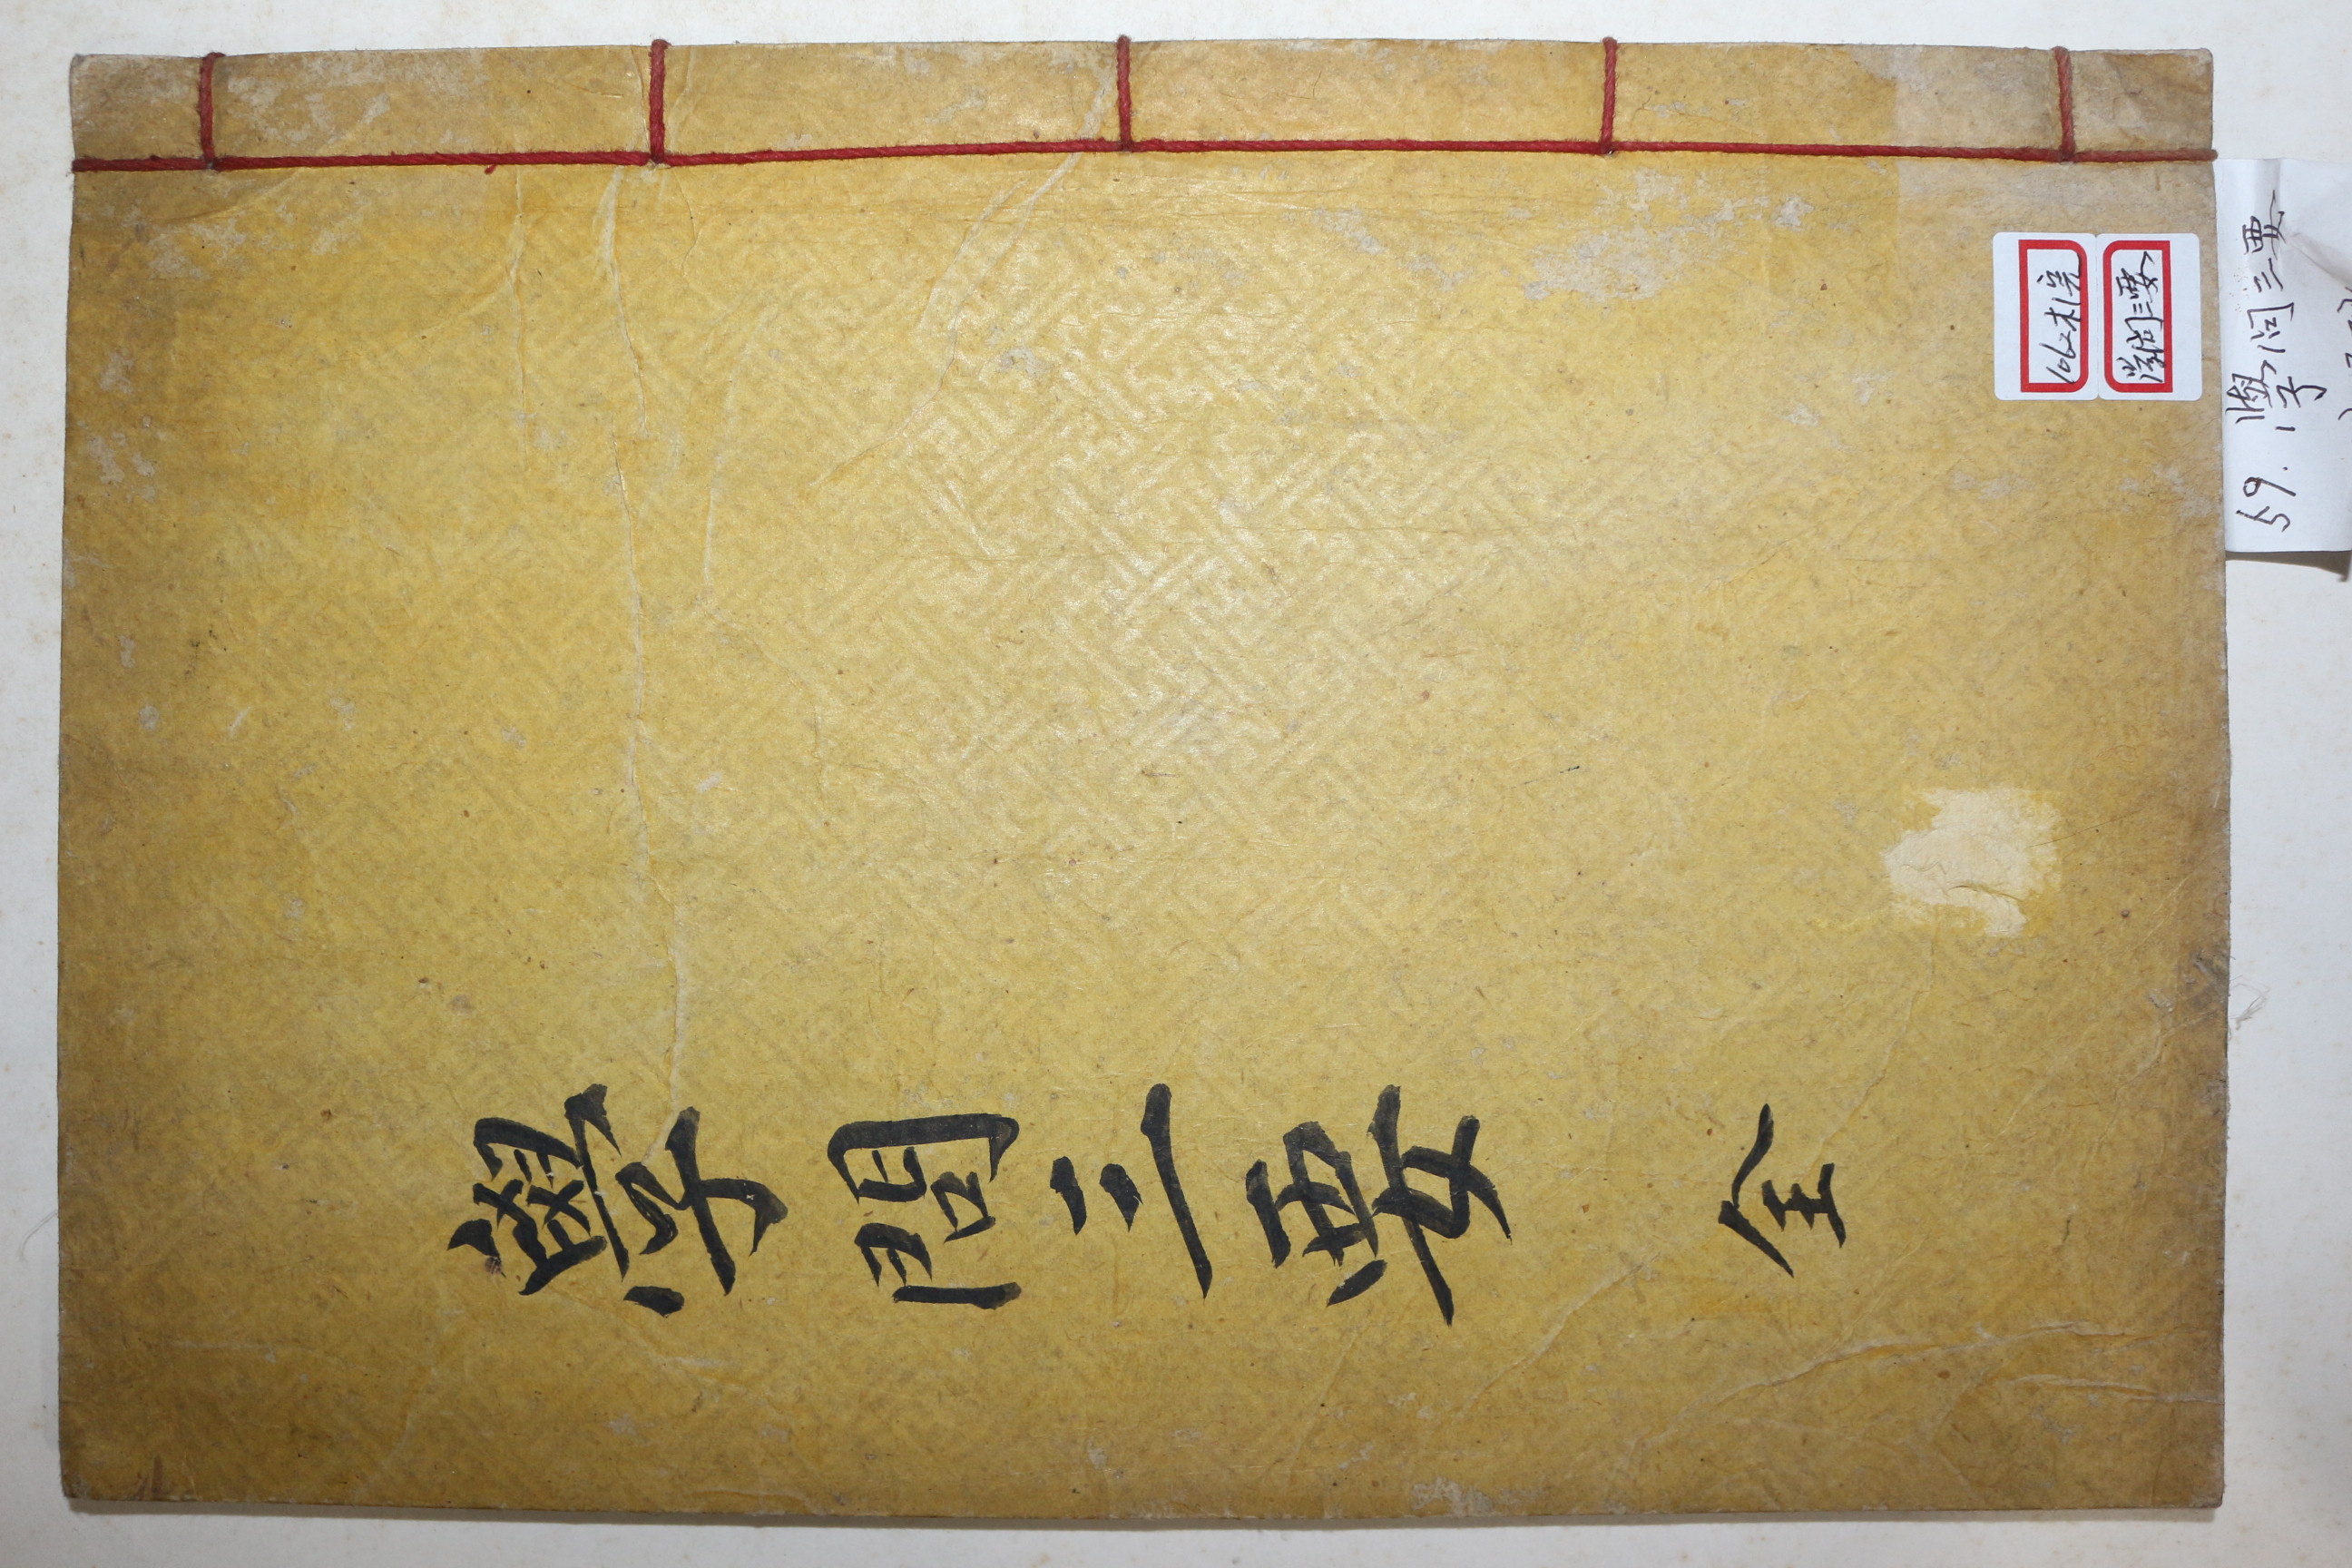 學問三要
全
1062木完
學问三要
59. 學问三要